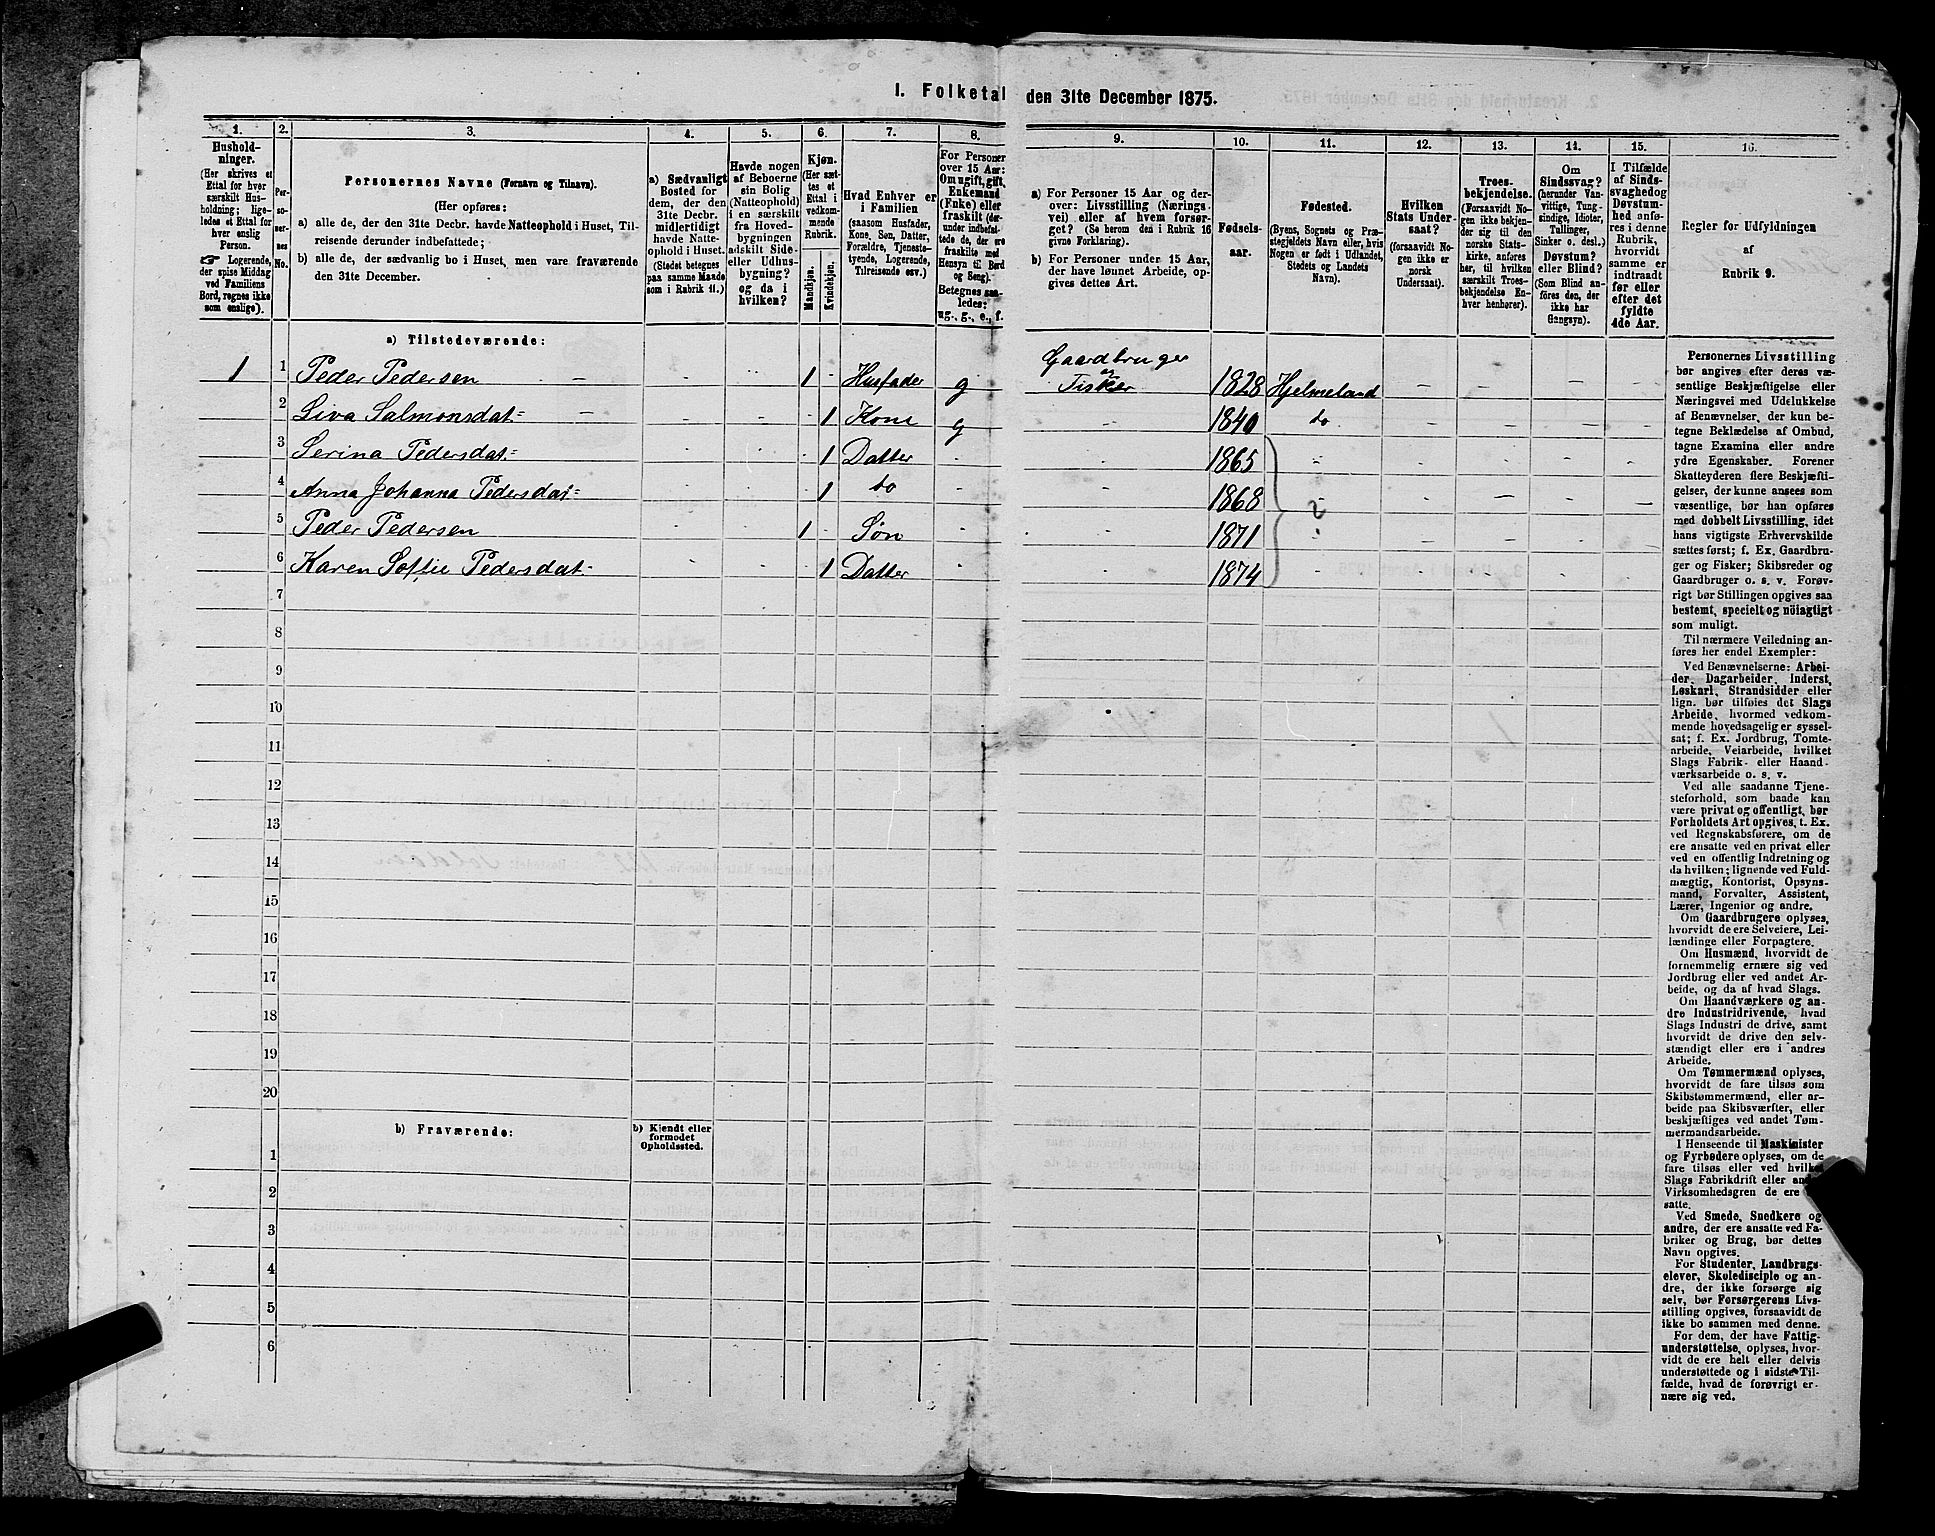 I. Folketal den 31te December 1875.
1. 2. 3. 4. 5. 6. 7. 8. 9. 10. 11. 12. 13. 14. 15. 16.
Husholdninger.
(Her skrives et
Ettal for hver
særskilt Husholdning; ligeledes
et Ettal for
hver enslig
Person.
☞ Logerende,
der spise Middag
ved Familiens
Bord, regnes ikke
som enslige).
Personernes No.
Personernes Navne (Fornavn og Tilnavn).
(Her opføres:
a) alle de, der den 31te Decbr. havde Natteophold i Huset, Tilreisende
derunder indbefattede;
b) alle de, der sædvanlig bo i Huset, men vare fraværende
den 31te December.
a) Sædvanligt
Bosted for
dem, der den
31te Decbr.
midlertidigt
havde Natteophold
i Huset.
(Stedet betegnes
paa samme Maade
som i Rubrik 11.)
Havde nogen
af Beboerne
sin Bolig
(Natteophold)
i en særskilt
fra Hovedbygningen
adskilt Side-
eller Udhusbygning?
og da i
hvilken?
Kjøn.
(Her sættes
et
Ettal i
vedkommende
Rubrik.
Mandkjøn.
Kvindekjøn.
Hvad Enhver er
i Familien
(saasom Husfader,
Kone, Søn, Datter,
Forældre, Tjenestetyende,
Logerende,
Tilreisende osv.)
For Personer
over 15 Aar:
Om ugift, gift,
Enkemand
(Enke) eller
fraskilt (derunder
indbefattede
de, der ere
fraskilte med
Hensyn til Bord
og Seng).
Betegnes saaledes:
ug., g., e., f.
a) For Personer 15 Aar og derover:
Livsstilling (Næringsvei)
eller af hvem forsørget?
(Se herom den i Rubrik 16
givne Forklaring).
b) For Personer under 15 Aar,
der have lønnet Arbeide, opgives
dettes Art.
Fødselsaar.
Fødested.
(Byens, Sognets og Præstegjeldets
Navn eller, hvis
Nogen er født i Udlandet,
Stedets og Landets
Navn).
Hvilken
Stats Undersaat?
(forsaavidt Nogen
ikke er
norsk
Undersaat).
Troesbekjendelse.
(Forsaavidt Nogen
ikke bekjender
sig til den
norske Statskirke,
anføres
her, til hvilken
særskilt Troesbekjendelse
Enhver
henhører).
Om
Sindssvag?
(herunder Vanvittige,
Tungsindige,
Idioter,
Sinker o. desl.)
Døvstum?
eller Blind?
(Som Blind anføres
den, der
ikke har
Gangsyn).
I Tilfælde
af Sindssvaghed
og
Døvstumhed
anføres
i denne
Rubrik,
hvorvidt
samme er
indtraadt
før eller
efter det
fyldte
4de Aar.
Regler for Udfyldningen
af
Rubrik 9.
a) Tilstedeværende:
1 1 Peder Pedersen - - - 1 - Husfader g Gaardbruger og Fisker 1828 Hjelmeland - - - -
2 Siva Salmonsdat= - - - 1 Kone g - 1840 do - - - -
3 Serina Pedersdat.= - - - 1 Datter - - 1865 - - - - -
4 Anna Johanna Pedersdat= - - - 1 do - - 1868 - - - - -
5 Peder Pedersen - - 1 - Søn - - 1871 - - - - -
6 Karen Sofie Pedersdat.- - - - 1 Datter - - 1874 - - - - -
7
8
9
10
11
12
13
14
15
16
17
18
19
20
b) Fraværende:
b) Kjendt eller
formodet
Opholdssted.
1
2
3
4
5
6
Personernes Livsstilling
bør angives efter deres væsentlige
Beskjæftigelse eller
Næringsvei med Udelukkelse
af Benævnelser, der kun betegne
Beklædelse af Ombud,
tagne Examina eller andre
ydre Egenskaber. Forener
Skatteyderen flere Beskjæftigelser,
der kunne ansees som
væsentlige, bør han opføres
med dobbelt Livsstilling, idet
hans vigtigste Erhvervskilde
sættes først; f. Ex. Gaardbruger
og Fisker; Skibsreder og
Gaardbruger o. s. v. Forøvrigt
bør Stillingen opgives saa
bestemt, specielt og nöiagtigt
som muligt.
Til nærmere Veiledning anføres
her endel Exempler:
Ved Benævnelserne: Arbeider,
Dagarbeider, Inderst,
Løskarl, Strandsidder eller
lign. bør tilføies det Slags
Arbeide, hvormed vedkommende
hovedsagelig er sysselsat;
f. Ex. Jordbrug, Tomtearbeide,
Veiarbeide, hvilket
Slags Fabrik- eller Haandværksarbeide
o. s. v.
Ved alle saadanne Tjenesteforhold,
som baade kan
være privat og offentligt, bør
Forholdets Art opgives, t. Ex.
ved Regnskabsførere, om de
ere ansatte ved en privat eller
ved en offentlig Indretning og
da hvilken; lignende ved Fuldmægtig,
Kontorist, Opsynsmand,
Forvalter, Assistent,
Lærer, Ingeniør og andre.
Om Gaardbrugere oplyses,
hvorvidt de ere Selveiere, Leilændinge
eller Forpagtere.
Om Husmænd, hvorvidt de
fornemmelig ernære sig ved
Jordbrug eller ved andet Arbeide,
og da af hvad Slags.
Om Haandværkere og andre
Industridrivende, hvad
Slags Industri de drive, samt
hvorvidt de drive den selvstændigt
eller ere i andres
Arbeide.
Om Tømmermænd oplyses,
hvorvidt de fare tilsøs som
Skibstømmermænd, eller arbeide
paa Skibsværfter, eller
beskjæftiges ved andet Tømmermandsarbeide.
I Henseende til Maskinister
og Fyrbødere oplyses, om de
fare tilsøs eller ved hvilket
Slags Fabrikdrift eller anden
Virksomhedsgren de ere
satte.
Ved Smede, Snedkere og
andre, der ere ansatte ved Fabriker
og Brug, bør dettes
Navn opgives.
For Studenter, Landbrugselever,
Skoledisciple og andre,
der ikke forsørge sig
selv, bør Forsørgerens Livsstilling
opgives, forsaavidt de
ikke bo sammen med denne.
For dem, der have Fattigunderstøttelse,
oplyses, hvorvidt
de ere helt eller delvis
understøttede og i sidste Tilfælde,
hvad de forøvrigt ernære
sig ved.